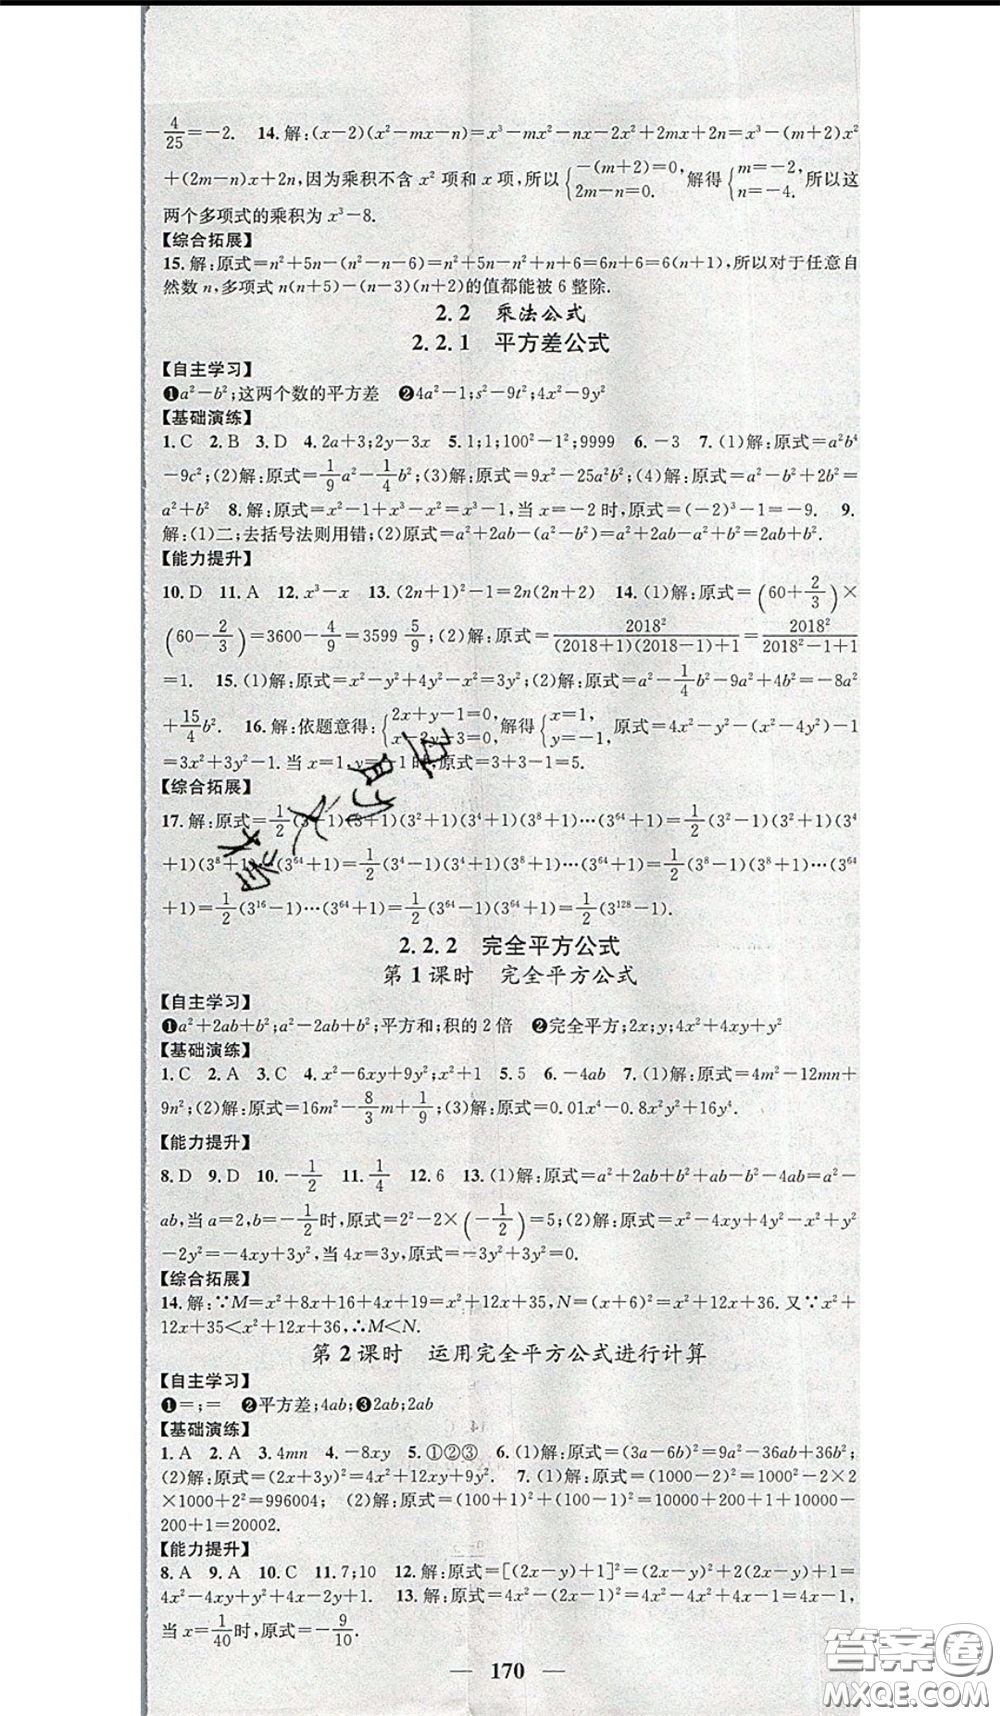 4/25=-2. 14.解:(x-2)(x²-mx-n)=x³-mx²-nx-2x²+2mx+2n=x³-(m+2)x²
+(2m-n)x+2n,因为乘积不含 x² 项和 x 项,所以{-(m+2)=0, 2m-n=0. 解得{m=-2, n=-4. 所以这
两个多项式的乘积为 x³-8.
【综合拓展】
15.解:原式=n²+5n-(n²-n-6)=n²+5n-n²+n+6=6n+6=6(n+1),所以对于任意自
然数 n,多项式 n(n+5)-(n-3)(n+2)的值都能被 6 整除.
2.2 乘法公式
2.2.1 平方差公式
【自主学习】
❶a²-b²;这两个数的平方差 ❷4a²-1;s²-9t²;4x²-9y²
【基础演练】
1.C 2.B 3.D 4.2a+3;2y-3x 5.1;1;100²-1²;9999 6.-3 7.(1)解:原式=a²b⁴
-9c²;(2)解:原式=1/9a²-1/4b²;(3)解:原式=9x²-25a²b²;(4)解:原式=a²-b²+2b²=
a²+b² 8.解:原式=x²-1+x³-x²=x³-1,当 x=-2 时,原式=(-2)³-1=-9. 9.
解:(1)二;去括号法则用错;(2)原式=a²+2ab-(a²-b²)=a²+2ab-a²+b²=2ab+b².
【能力提升】
10.D 11.A 12.x³-x 13.(2n+1)²-1=2n(2n+2) 14.(1)解:原式=(60+2/3)×
(60-2/3)=3600-4/9=3599 5/9;(2)解:原式=2018²/(2018+1)(2018-1)+1=2018²/2018²-1+1
=1. 15.(1)解:原式=x²-y²+4y²-x²=3y²;(2)解:原式=a²-1/4b²-9a²+4b²=-8a²
+15/4b². 16.解:依题意得:{2x+y-1=0, x-2y-3=0, 解得{x=1, y=-1, 原式=4x²-y²-(x²-4y²)-1
=3x²+3y²-1.当 x=1,y=-1时,原式=3+3-1=5.
【综合拓展】
17.解:原式=1/2(3-1)(3+1)(3²+1)(3⁴+1)(3⁸+1)…(3⁶⁴+1)=1/2(3²-1)(3²+1)(3⁴
+1)(3⁸+1)…(3⁶⁴+1)=1/2(3⁴-1)(3⁴+1)(3⁸+1)…(3⁶⁴+1)=1/2(3⁸-1)(3⁸+1)…(3⁶⁴
+1)=1/2(3¹⁶-1)…(3⁶⁴+1)=1/2(3⁶⁴-1)(3⁶⁴+1)=1/2(3¹²⁸-1).
2.2.2 完全平方公式
第 1 课时 完全平方公式
【自主学习】
❶a²+2ab+b²;a²-2ab+b²;平方和;积的 2 倍 ❷完全平方;2x;y;4x²+4xy+y²
【基础演练】
1.C 2.A 3.C 4.x²-6xy+9y²;x²+1 5.5 6.-4ab 7.(1)解:原式=4m²-12mn+
9n²;(2)解:原式=16m²-8/3m+1/9;(3)解:原式=0.01x⁴-0.8x²y²+16y⁴.
【能力提升】
8.D 9.D 10.-1/2 11.1/4 12.6 13.(1)解:原式=a²+2ab+b²+ab-b²-4ab=a²-
ab,当 a=2,b=-1/2时,原式=2²-2×(-1/2)=5;(2)解:原式=x²-4xy+4y²-x²+y²
-2y²=-4xy+3y²,当 4x=3y,原式=-3y²+3y²=0.
【综合拓展】
14.解:∵M=x²+8x+16+4x+19=x²+12x+35,N=(x+6)²=x²+12x+36.又∵x²+
12x+35<x²+12x+36,∴M<N.
第 2 课时 运用完全平方公式进行计算
【自主学习】
❶=;= ❷平方差;4ab;❸2ab;2ab
【基础演练】
1.A 2.A 3.4mn 4.-8xy 5.①②③ 6.(1)解:原式=(3a-6b)²=9a²-36ab+36b²;
(2)解:原式=(2x+3y)²=4x²+12xy+9y². 7.(1)解:原式=(1000-2)²=1000²-2×2
×1000+2²=996004; (2)解:原式=(100+1)²+(100-1)²=10000+200+1+10000-
200+1=20002.
【能力提升】
8.A 9.A 10.C 11.7;10 12.解:原式=[(2x-y)+1]²=(2x-y)²+2(2x-y)+1=
4x²-4xy+y²+4x-2y+1. 13.解:原式=4x²-(2x-1)²=4x²-4x²+4x-1=4x-1,
当 x=1/40时,原式=-9/10.
— 170 —
答案圈
MXQE.COM